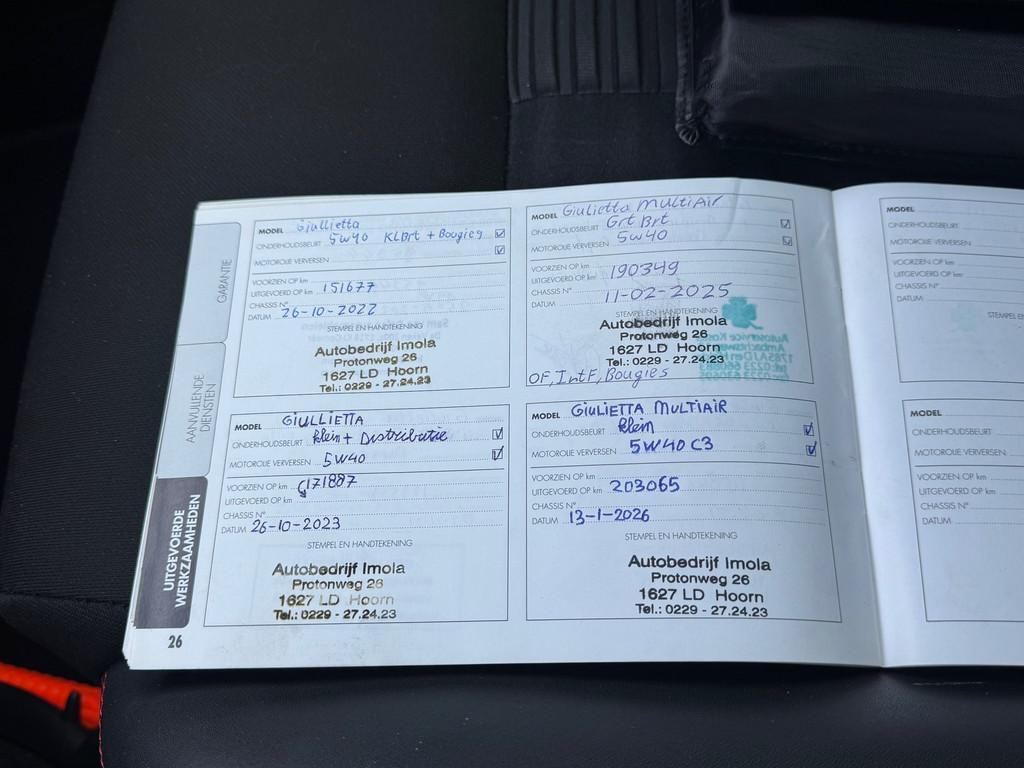 GARANTIE
AANVULLENDE
DIENSTEN
UITGEVOERDE
WERKZAAMHEDEN
26
MODEL Giullietta
ONDERHOUDSBEURT 5W40 KLBrt + Bougies
MOTOROLIE VERVERSEN
VOORZIEN OP km
UITGEVOERD OP km 151677
CHASSIS N°
DATUM 26-10-2022
STEMPEL EN HANDTEKENING
Autobedrijf Imola
Protonweg 26
1627 LD Hoorn
Tel.: 0229 - 27.24.23
MODEL GIULLIETTA
ONDERHOUDSBEURT klein + Distributie
MOTOROLIE VERVERSEN 5W40
VOORZIEN OP km 171887
UITGEVOERD OP km
CHASSIS N°
DATUM 26-10-2023
STEMPEL EN HANDTEKENING
Autobedrijf Imola
Protonweg 26
1627 LD Hoorn
Tel.: 0229 - 27.24.23
MODEL Giulietta MultiAir
ONDERHOUDSBEURT Grt Brt
MOTOROLIE VERVERSEN 5W40
VOORZIEN OP km
UITGEVOERD OP km 190349
CHASSIS N°
DATUM 11-02-2025
STEMPEL EN HANDTEKENING
Autobedrijf Imola
Protonweg 26
1627 LD Hoorn
Tel.: 0229 - 27.24.23
OF, IntF, Bougies
MODEL GIULIETTA MULTIAIR
ONDERHOUDSBEURT klein
MOTOROLIE VERVERSEN 5W40 C3
VOORZIEN OP km
UITGEVOERD OP km 203065
CHASSIS N°
DATUM 13-1-2026
STEMPEL EN HANDTEKENING
Autobedrijf Imola
Protonweg 26
1627 LD Hoorn
Tel.: 0229 - 27.24.23
MODEL
ONDERHOUDSBEURT
MOTOROLIE VERVERSEN
VOORZIEN OP km
UITGEVOERD OP km
CHASSIS N°
DATUM
STEMPEL EN
MODEL
ONDERHOUDSBEURT
MOTOROLIE VERVERSEN
VOORZIEN OP km
UITGEVOERD OP km
CHASSIS N°
DATUM